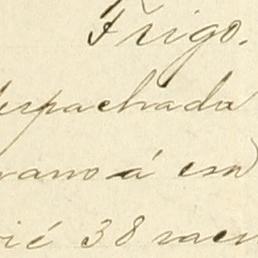 Trigo.
espachada
vano á esa
ié 38 sacos